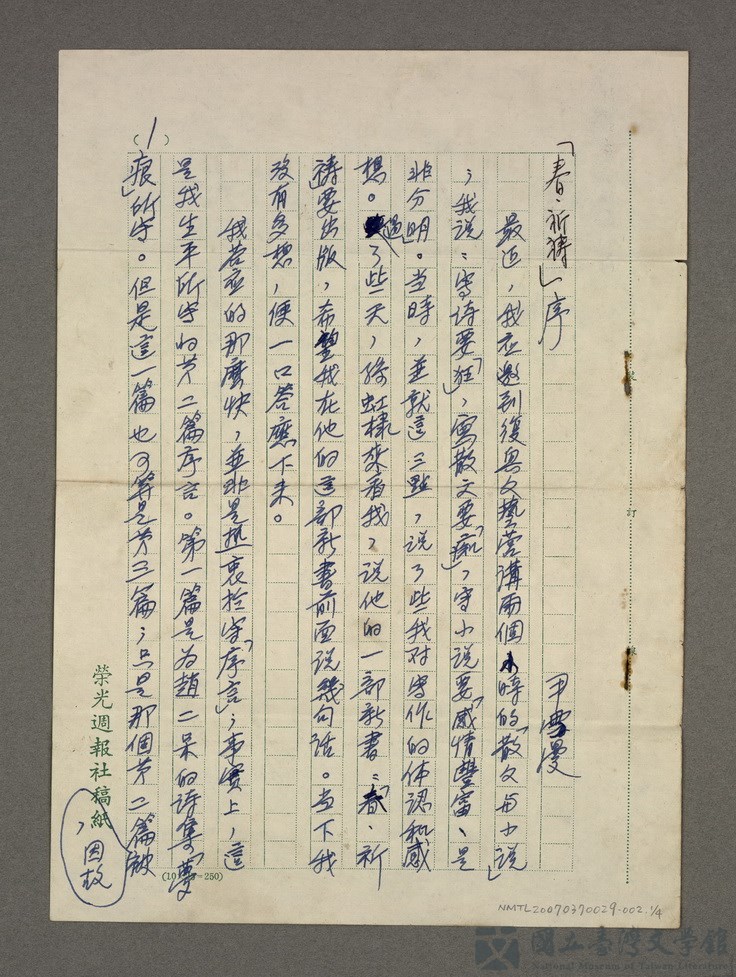 「春.祈禱」序
尹雪曼
最近，我应邀到復興文藝营講兩個小時的「散文与小説」
，我説：写诗要「狂」，寫散文要「痴」，写小説要「感情豐富、是
非分明」。当時，並就這三點，説了些我对寫作的体認和感
想。過了些天，徐虹樣來看我，説他的一部新書：「春.祈
禱」要出版，希望我在他的這部新書前面説幾句话。当下我
沒有多想，便一口答應下来。
我答应的那麼快，並非是热衷於写「序言」；事實上，這
是我生平所写的苐二篇序言。第一篇是为趙二呆的诗集「夢
痕」所写。但是這一篇也可算是苐三篇；只是那個苐二篇被
，因故
(1)
榮光週報社稿紙
(10×25=250)
裝
訂
線
NMTL20070370029-002.1/4
國立臺灣文學館
National Museum of Taiwan Literature